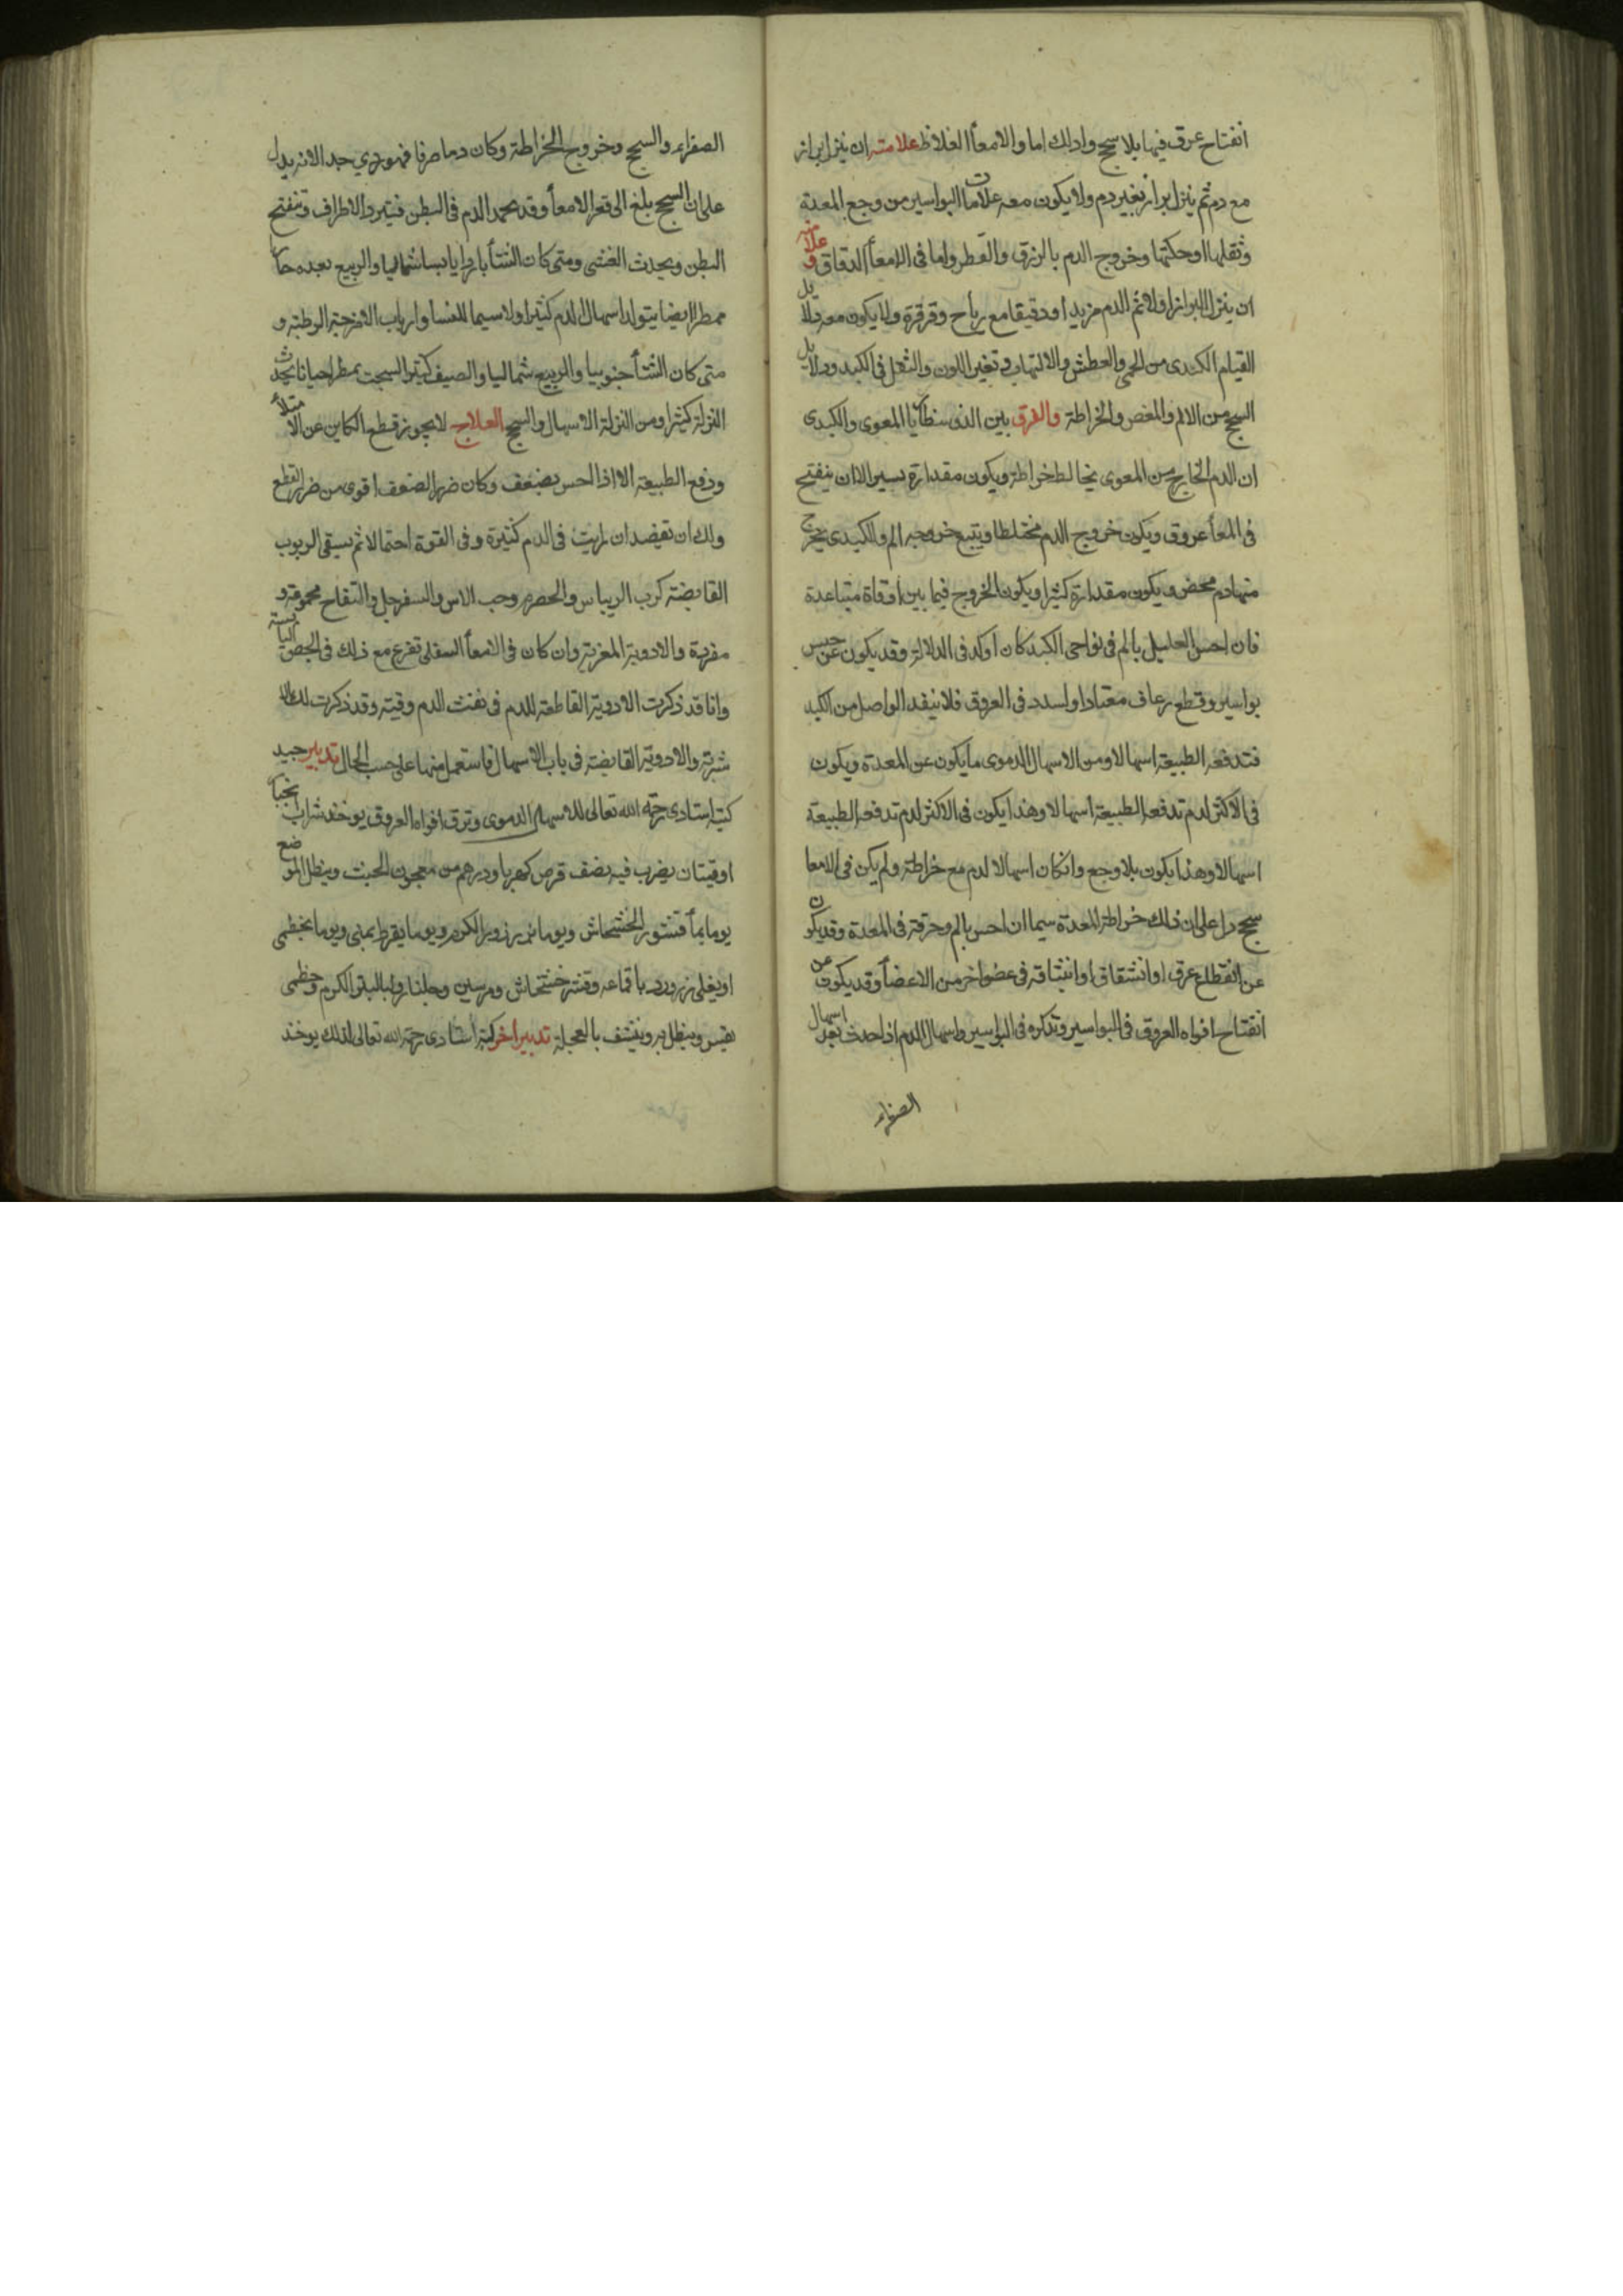 انفتاح عرق فيها بلا سحج وادلك اما والامعأ الغلاظ علامته ان ينزل براز
مع دم ثم ينزل براز بغير دم ولا يكون معه علامات البواسير من وجع المعدة
وثقلها او حكتها وخروج الدم بالزرق والقطر واما فى الامعأ الدقاق وعلامته
ان ينزل البراز اولا ثم الدم مزبدا ودقيقا مع رياح وقرقرة ولا يكون معه دلايل
القيام الكبدى من الحمى والعطش والالتهاب وتغير اللون والثقل فى الكبد ودلايل
السحج من الالم والمغص والخراطة والفرق بين الذى سنطاريا المعوى والكبدى
ان الدم الخارج من المعوى يخالط خراطة ويكون مقداره يسير الا ان ينفتح
فى المعأ عروق ويكون خروج الدم مختلطا ويتبع خروجه الم والكبدى يخرج
منها دم محض ويكون مقداره كثيرا ويكون الخروج فيما بين اوقاة متباعدة
فان احس العليل بالم فى نواحى الكبد كان اوكد فى الدلالة وقد يكون عن حبس
بواسير وقطع رعاف معتاد او لسدد فى العروق فلا ينفد الواصل من الكبد
فتدفعه الطبيعة اسهالا ومن الاسهال الدموى ما يكون عن المعدة ويكون
فى الاكثر لدم تدفعه الطبيعة اسهالا وهذا يكون فى الاكثر لدم تدفعه الطبيعة
اسهالا وهذا يكون بلا وجع وان كان اسهالا لدم مع خراطة ولم يكن فى الامعا
سحج دل على ان ذلك خراطة المعدة سيما ان احس بالم وحرقة فى المعدة وقد يكون
عن انقطاع عرق او انشقاق او انبثاقه فى عضو اخر من الاعضأ وقد يكون عن
انفتاح افواه العروق فى البواسير وتذكره فى البواسير واسهال الدم اذا حدث بعد اسهال
الصفراء
الصفراء والسحج وخروج الخراطة وكان دما صرفا فهو ردي جدا لانه يدل
على ان السحج بلغ الى قعر الامعأ وقد يجمد الدم فى البطن فيبرد الاطراف وينفتح
البطن ويحدث الغشى ومتى كان الشتأ باردا يابسا شماليا والربيع بعده حارا
ممطرا ايضا يتولد اسهال الدم كثيرا ولا سيما للنسا وارباب الامزجة الرطبة و
متى كان الشتأ جنوبيا والربيع شماليا والصيف كثير السحب يمطر احيانا يحدث
النزلة كثيرا ومن النزلة الاسهال والسحج العلاج لا يجوز قطع الكاين عن الامتلأ
ودفع الطبيعة الا اذا احس بضعف وكان ضرر الضعف اقوى من ضرر القطع
ولك ان تفصد ان رايت فى الدم كثيرة وفى القوة احتمالا ثم يسقى الربوب
القابضة كرب الريباس والحصرم وحب الاس والسفرجل والتفاح مجموعة و
مفردة والادوية المغرية وان كان فى الامعأ السفلى تفرع مع ذلك فى الحقن اليابسة
وانا قد ذكرت الادوية القاطعة للدم فى نفث الدم وقيته وقد ذكرت لك الا
شربة والادوية القابضة فى باب الاسهال فاستعمل منها على حسب الحال تدبير جيد
كتبه استادى رحمه الله تعالى للاسهال الدموى وترق افواه العروق يوخذ شراب انجبار
اوقيتان يضرب فيه نصف قرص كهربا ودرهم من معجون الخبث وينطل الموضع
يوما بمأ قشور الخشخاش ويوما ببزر وبر الكرم ويوما بقرط بمنى ويوما بخطمى
او يغلى زر ورد باقماعه وقشر خشخاش ومرسين وجلنار ولبالب الكرم وخطمى
هيس وينطل به وينشف بالعجلة تدبير اخر كتبه استادى رحمه الله تعالى لذلك يوخذ